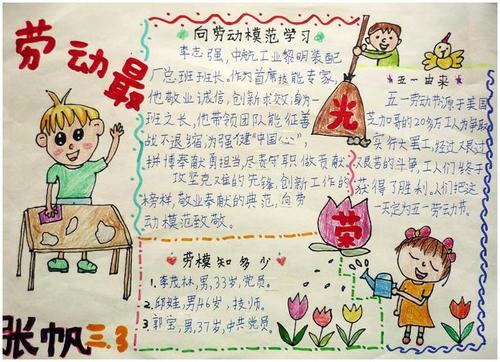 劳动最
光
荣
向劳动模范学习
李志强,中航工业黎明装配
厂总班班长。作为首席技能专家,
他敬业诚信,创新求效;身为一
班之长,他带领团队能征善
战不退缩,为强健“中国心”,
拼搏奉献勇担当,尽责守职做贡献。
攻坚克难的先锋,创新工作的
榜样,敬业奉献的典范,向劳
动模范致敬。
五一由来
五一劳动节源于美国
芝加哥的20多万工人为争取
实行大罢工,经过又艰过
艰苦的斗争,工人们终于
获得了胜利。人们把这
一天定为五一劳动节。
劳模知多少
1、李茂林,男,33岁,党员。
2、邱娃,男46岁,技师。
3、郭宝,男,37岁,中共党员。
张帆 三.3